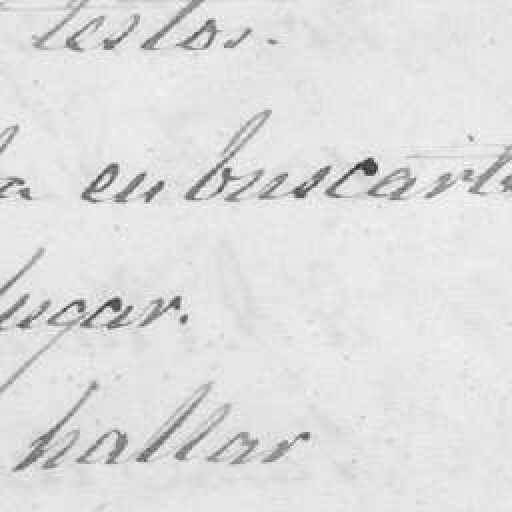 testos.
la en buscarl
lugar.
hallar